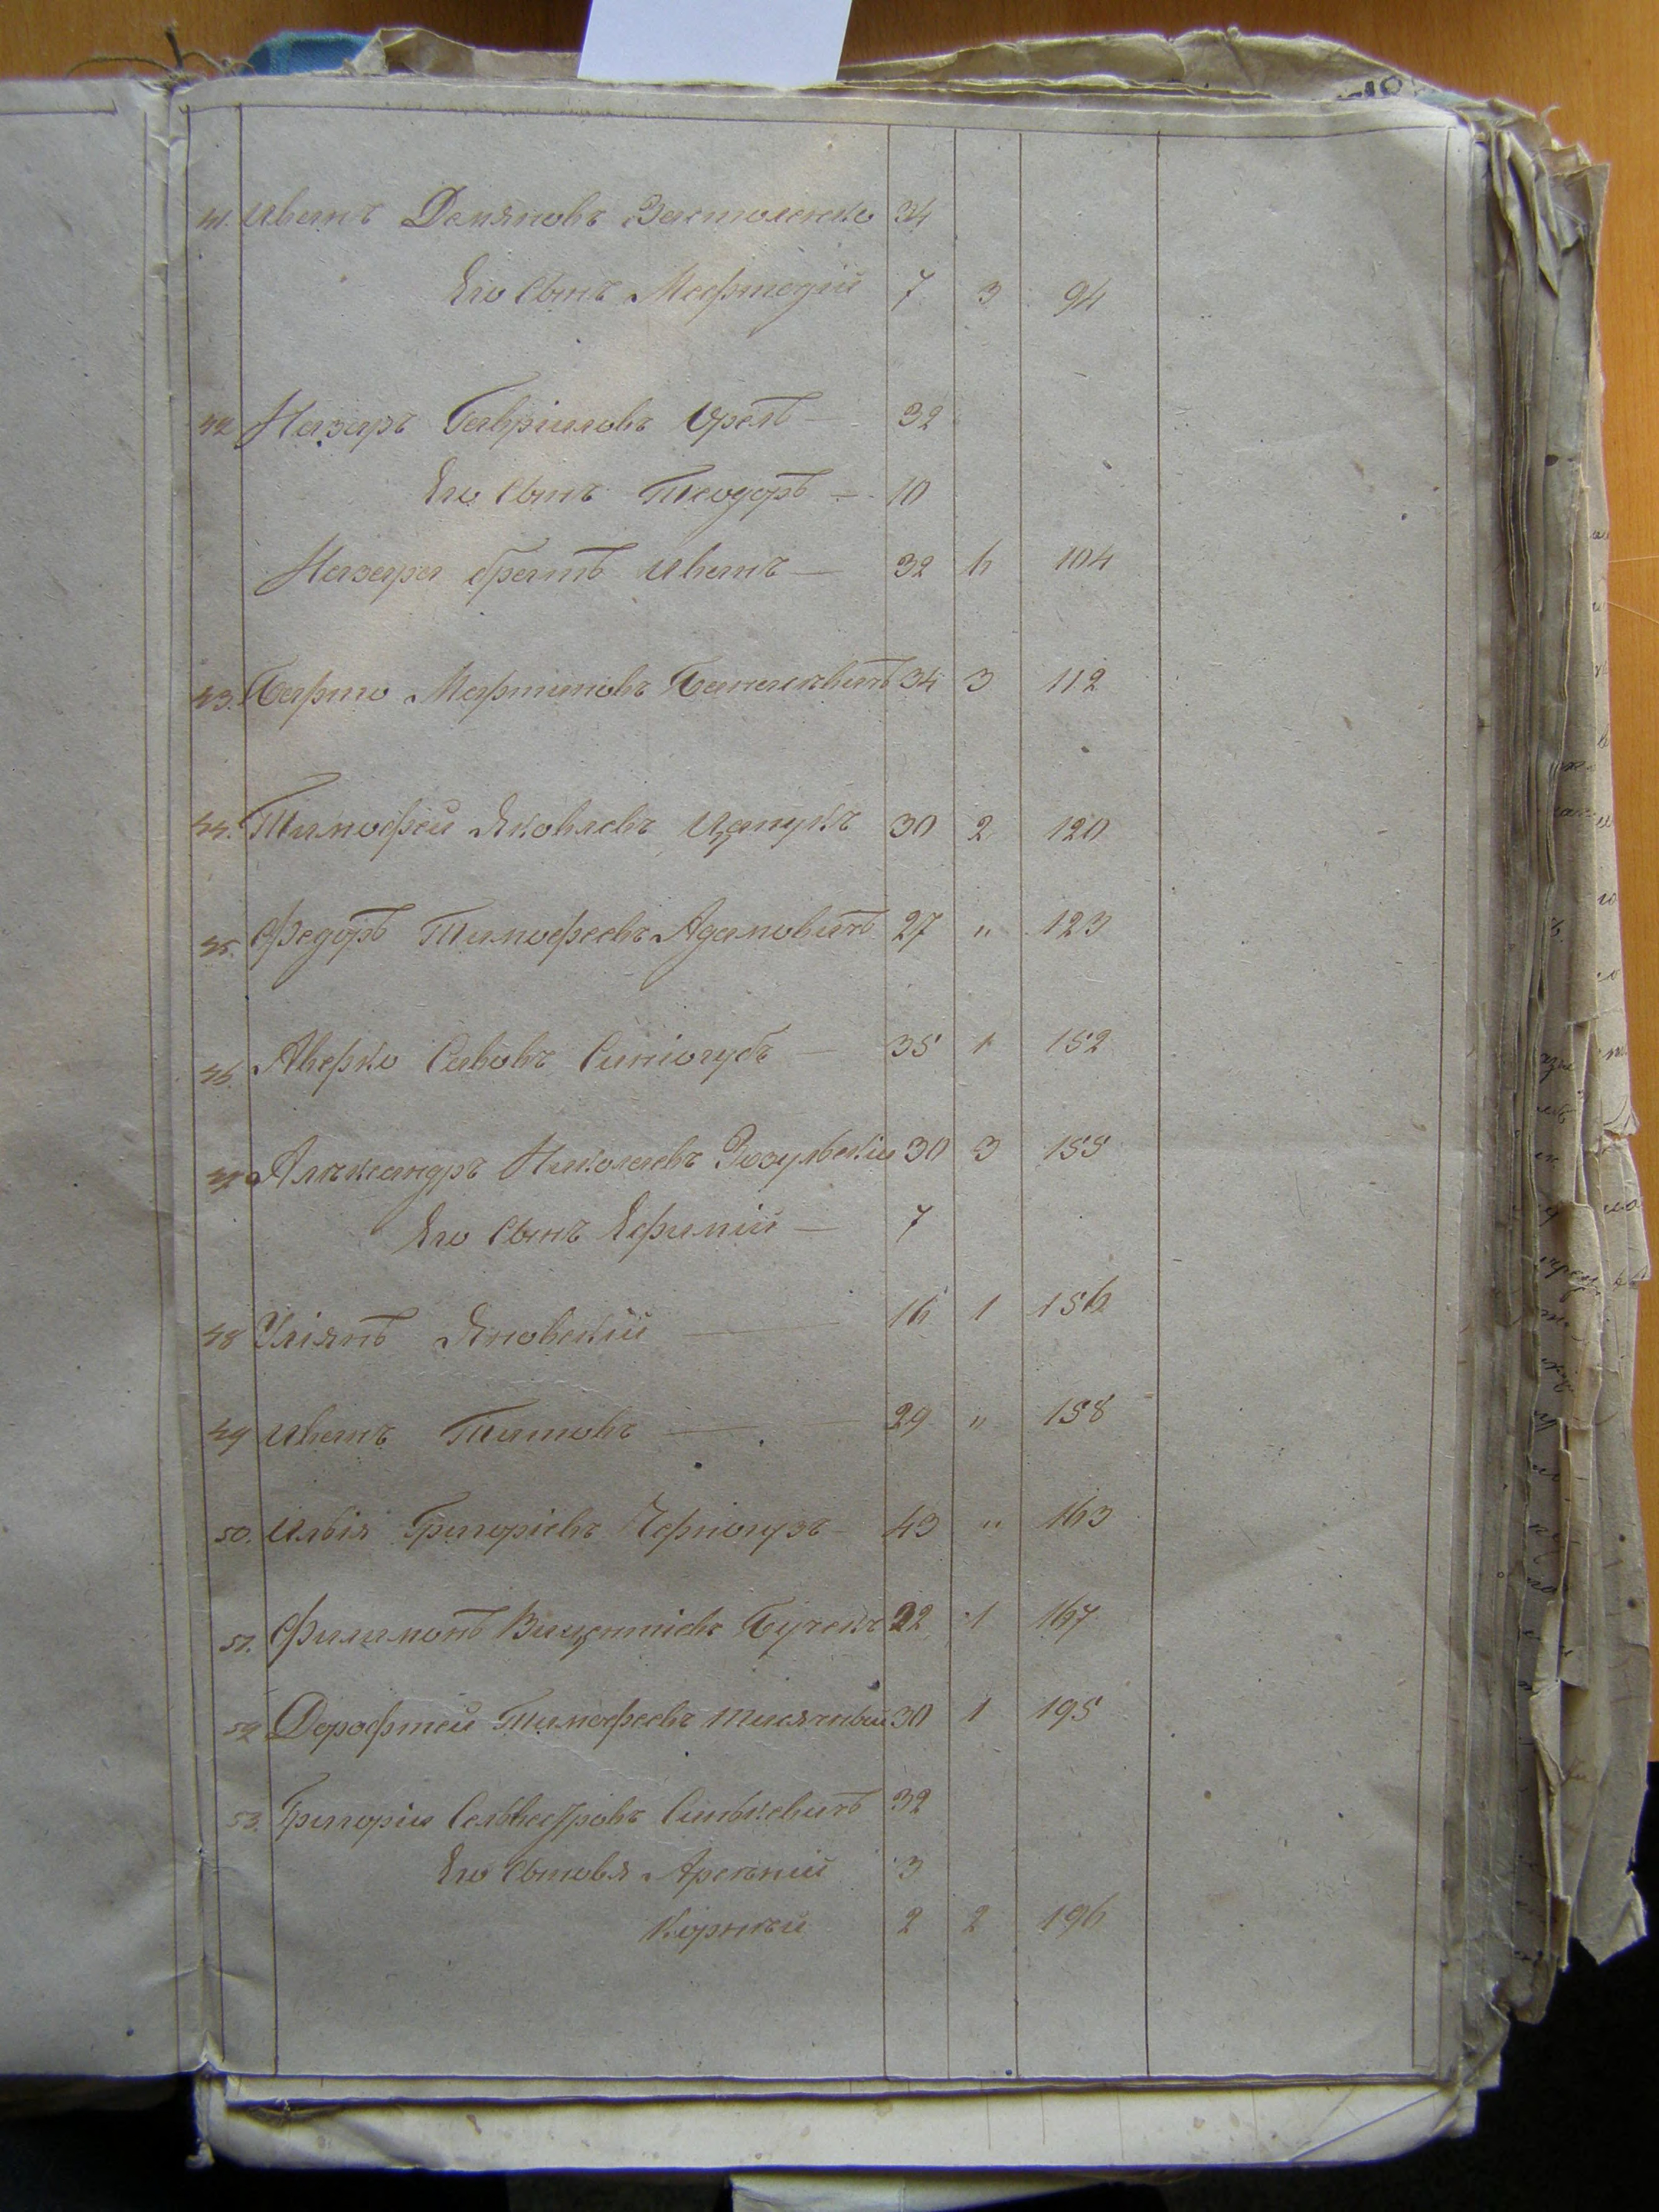 41. Иванъ Демяновъ Застоленко 34
Его Сынъ Мефтодій 7 3 94
42 Назаръ Гавріиловъ Орелъ — 32
Его Сынъ Теодоръ — 10
Назара братъ Иванъ — 32 6 104
43. Барто Мартиновъ 34 3 112
44. Тимофей Яковлевъ Цапукъ 30 2 120
45. Федоръ Тимофеевъ Адамовичъ 27 " 123
46. Аверко Савовъ Синіогубъ — 35 1 152
47 Александръ Николаевъ Зозульскій 30 3 155
Его Сынъ Ефимій — 7
48 Уліянъ Яновскій — 16 1 156
49 Иванъ Титовъ — 29 " 158
50. Илія Григоріевъ Чорногузъ — 43 " 163
51. Филимонъ Вицентіевъ 22 1 167
52 Дорофтей Тимофеевъ 30 1 195
53. Григорій Сельвестровъ Синькевичъ 32
Его Сыновя Арсеній 3
Корней 2 2 196